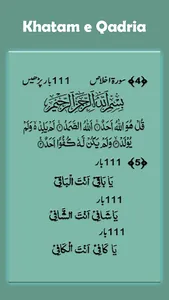 Khatam e Qadria
﴿4﴾ سورۃ اخلاص 111 بار پڑھیں
بِسْمِ اللّٰهِ الرَّحْمٰنِ الرَّحِيْمِ
قُلْ هُوَ اللّٰهُ اَحَدٌ۞ اَللّٰهُ الصَّمَدُ۞ لَمْ يَلِدْ۞ وَلَمْ
يُوْلَدْ۞ وَلَمْ يَكُنْ لَّهٗ كُفُوًا اَحَدٌ۞
﴿5﴾ 111 بار
يَا بَاقِيْ اَنْتَ الْبَاقِيْ
111 بار
يَا شَافِيْ اَنْتَ الشَّافِيْ
111 بار
يَا كَافِيْ اَنْتَ الْكَافِيْ